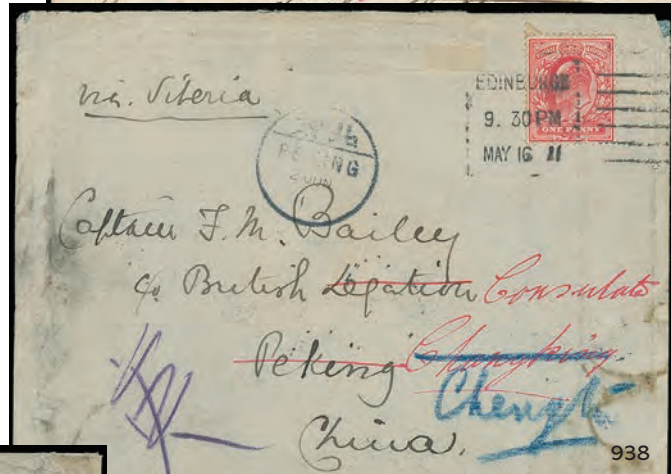 via. Siberia
EDINBURGH
9. 30 PM
MAY 16 11
ONE PENNY
PEKING
Captain F. M. Bailey
c/o British Legation Consulate
Peking Chungking
Chengtu
China.
938